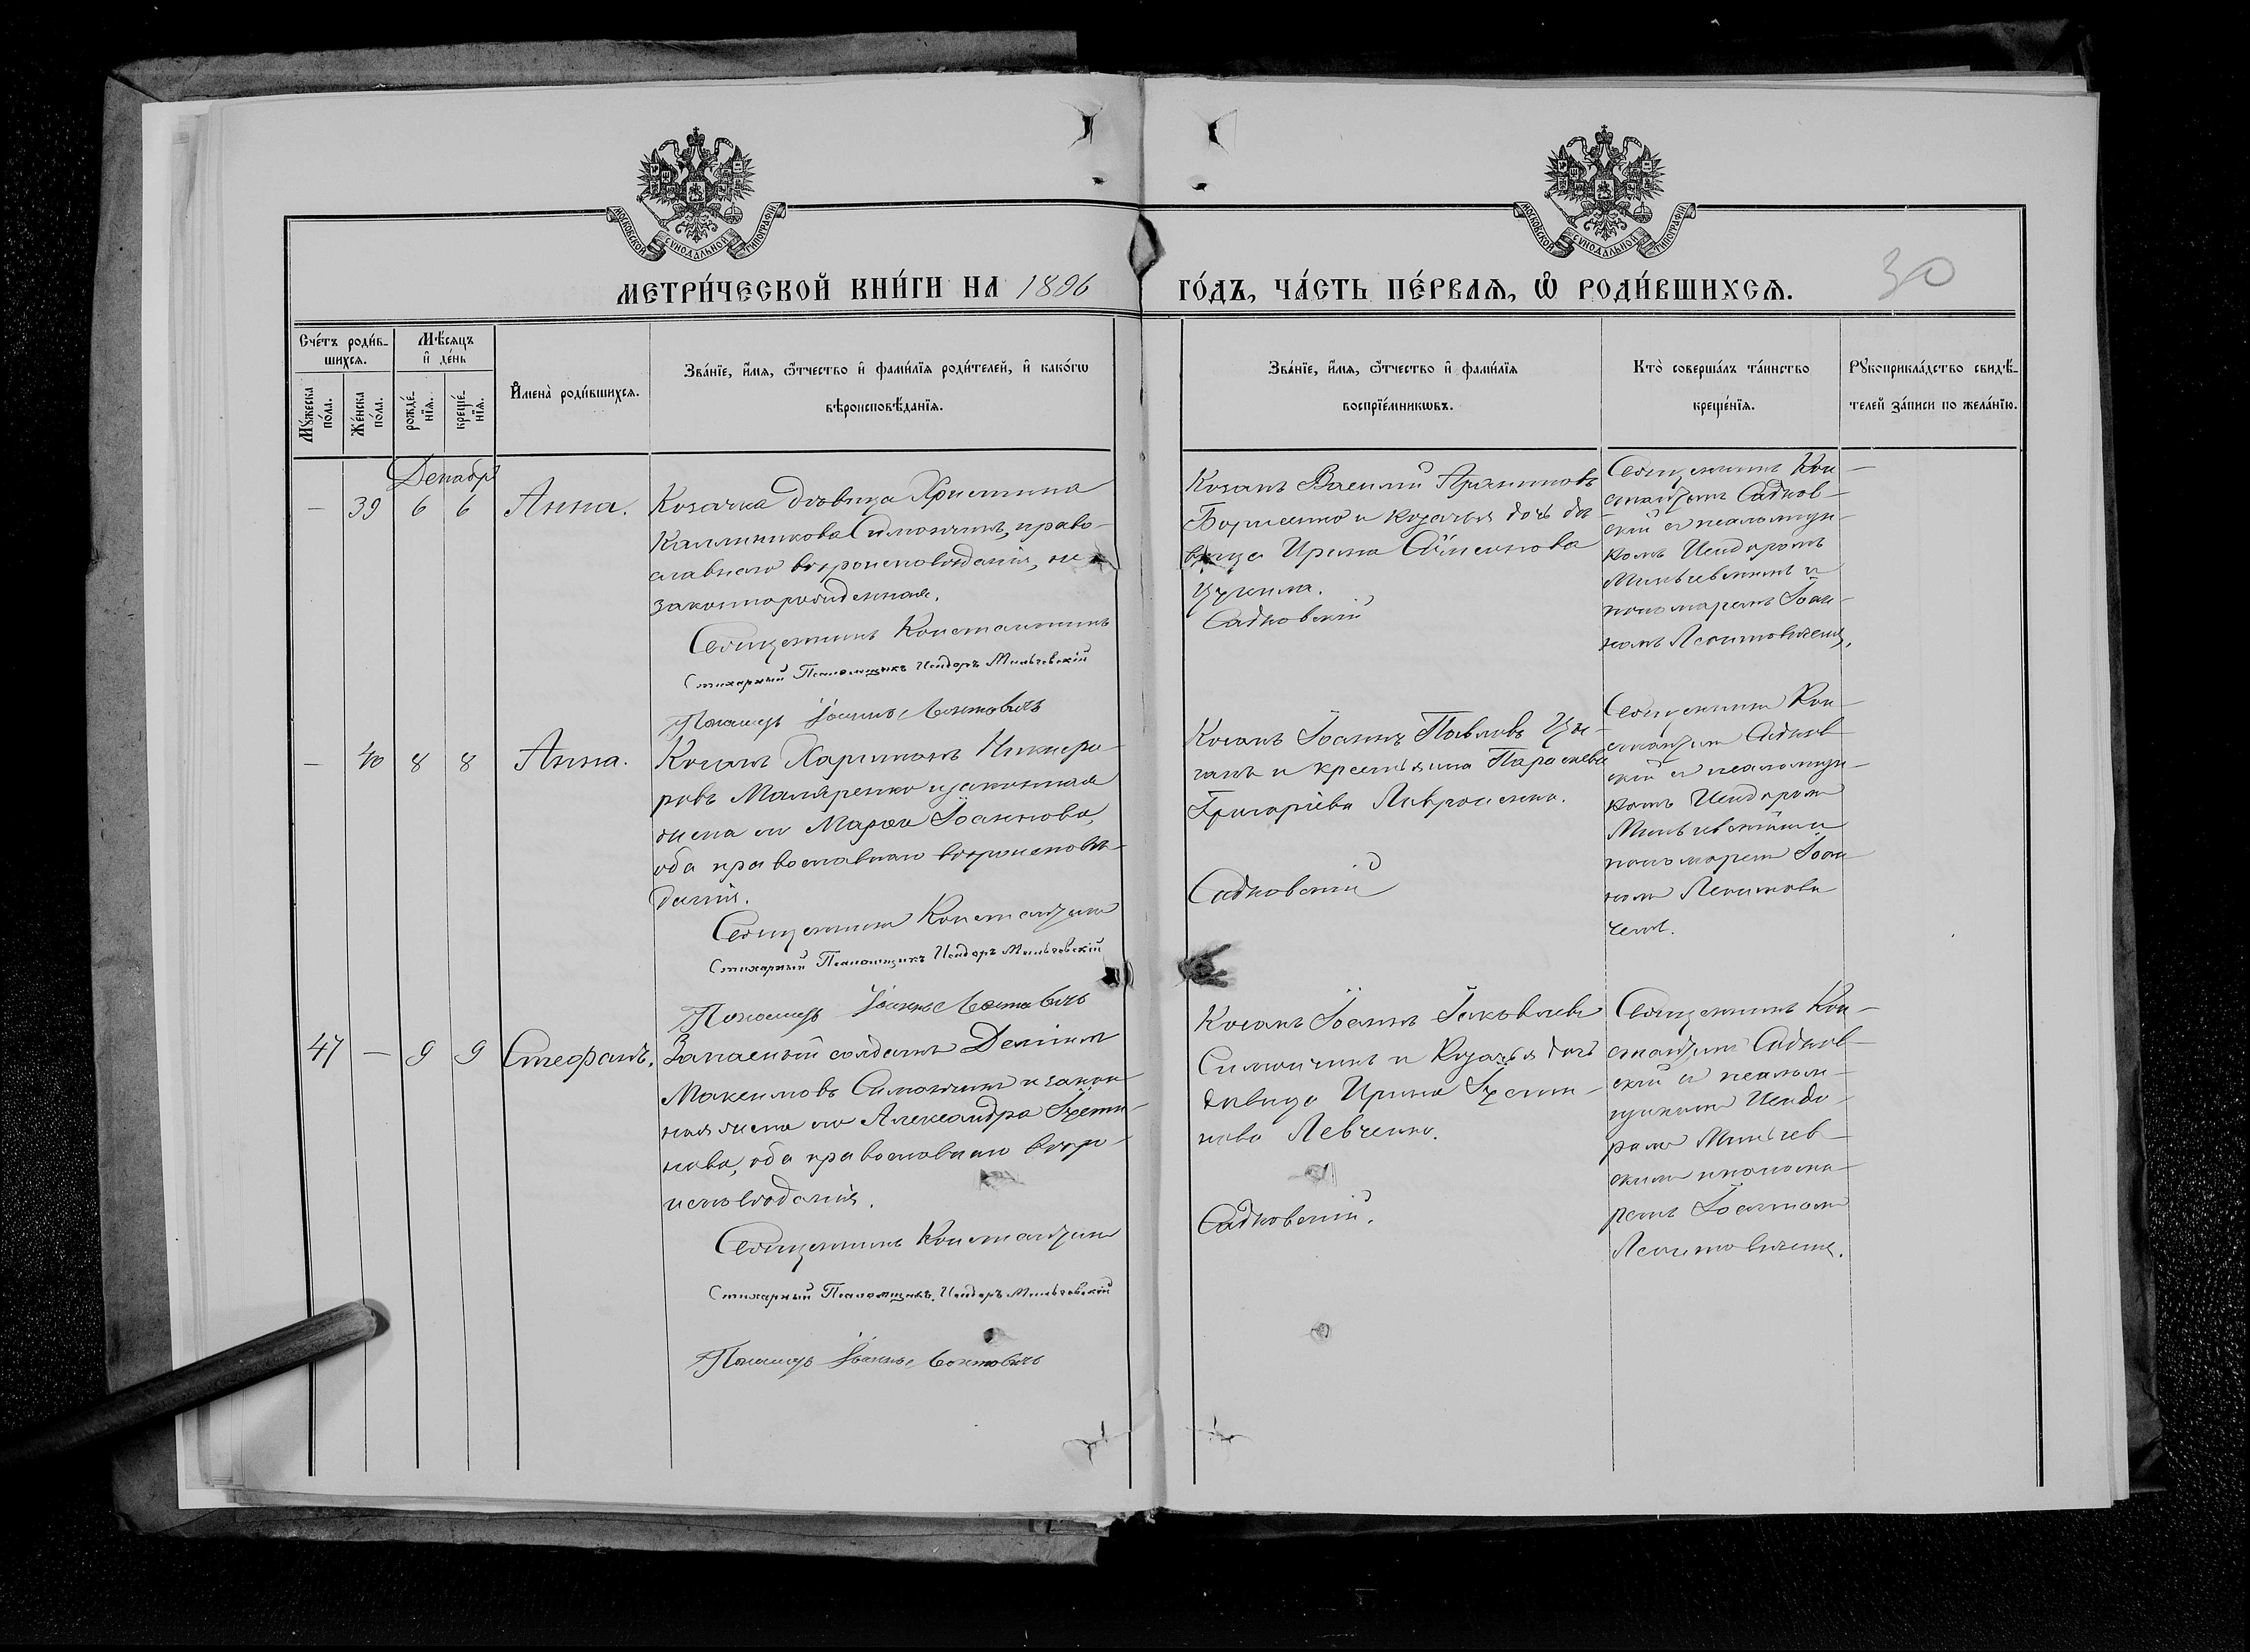 МОСКОВСКОЙ СѴНОДАЛЬНОЙ ТИПОГРАФІИ
МОСКОВСКОЙ СѴНОДАЛЬНОЙ ТИПОГРАФІИ
МЕТРИ́ЧЕСКОЙ КНИ́ГИ НА 1896 ГО́ДЪ, ЧА́СТЬ ПЕ́РВАѦ, Ѡ҆ РОДИ́ВШИХСѦ.
30
Сче́тъ роди́в-
шихсѧ.
Мꙋ́жеска
по́ла.
Же́нска
по́ла.
Мѣ́сѧцъ
и҆ де́нь
рожде́-
нїѧ.
креще́-
нїѧ.
И҆мена̀ роди́вшихсѧ.
Зва́нїе, и҆́мѧ, ѻ҆́тчество и҆ фами́лїѧ роди́телей, и҆ како́гѡ
вѣроисповѣ́данїѧ.
Зва́нїе, и҆́мѧ, ѻ҆́тчество и҆ фами́лїѧ
воспрїе́мникѡвъ.
Кто̀ соверша́лъ та́инство
креще́нїѧ.
Рꙋкоприкла́дство свидѣ́-
телей за́писи по жела́нїю.
Декабр
— 39 6 6 Анна.
Козачка дѣвица Христина
Каллиникова Симончикъ, право-
славнаго вѣроисповѣданія, не
законнорожденная.
Священникъ Константинъ
Стихарный Псаломщикъ Исидоръ Миньчевскій
Пономарь Іоаннъ Леонтовичъ
Козакъ Василій
Борисенко и козачья дочь дѣ-
вица Ирина
Садковскій
Священникъ Кон-
стантинъ Садков-
скій съ псаломщи-
комъ Исидоромъ
Миньчевскимъ и
пономаремъ Іоан-
номъ Леонтовичемъ.
— 40 8 8 Анна.
Козакъ Харитонъ Никифо-
ровъ Маляренко и законная
жена его Марфа Іоаннова,
оба православнаго вѣроисповѣ-
данія.
Священникъ Константинъ
Стихарный Псаломщикъ Исидоръ Миньчевскій
Пономарь Іоаннъ Леонтовичъ
Козакъ Іоаннъ Павловъ Цы-
ганъ и крестьянка Параскева
Григоріева
Садковскій
Священникъ Кон-
стантинъ Садков-
скій съ псаломщи-
комъ Исидоромъ
Миньчевскимъ и
пономаремъ Іоан-
номъ Леонтови-
чемъ.
47 — 9 9 Стефанъ.
Запасный солдатъ
Максимовъ Симончикъ и закон-
ная жена его Александра Іусти-
нова, оба православнаго вѣро-
исповѣданія.
Священникъ Константинъ
Стихарный Псаломщикъ Исидоръ Миньчевскій
Пономарь Іоаннъ Леонтовичъ
Козакъ Іоаннъ Іаковлевъ
Симончикъ и козачья дочь
дѣвица Ирина Іусти-
нова Левченко.
Садковскій.
Священникъ Кон-
стантинъ Садков-
скій съ псалом-
щикомъ Исидо-
ромъ Миньчев-
скимъ и понома-
ремъ Іоанномъ
Леонтовичемъ.